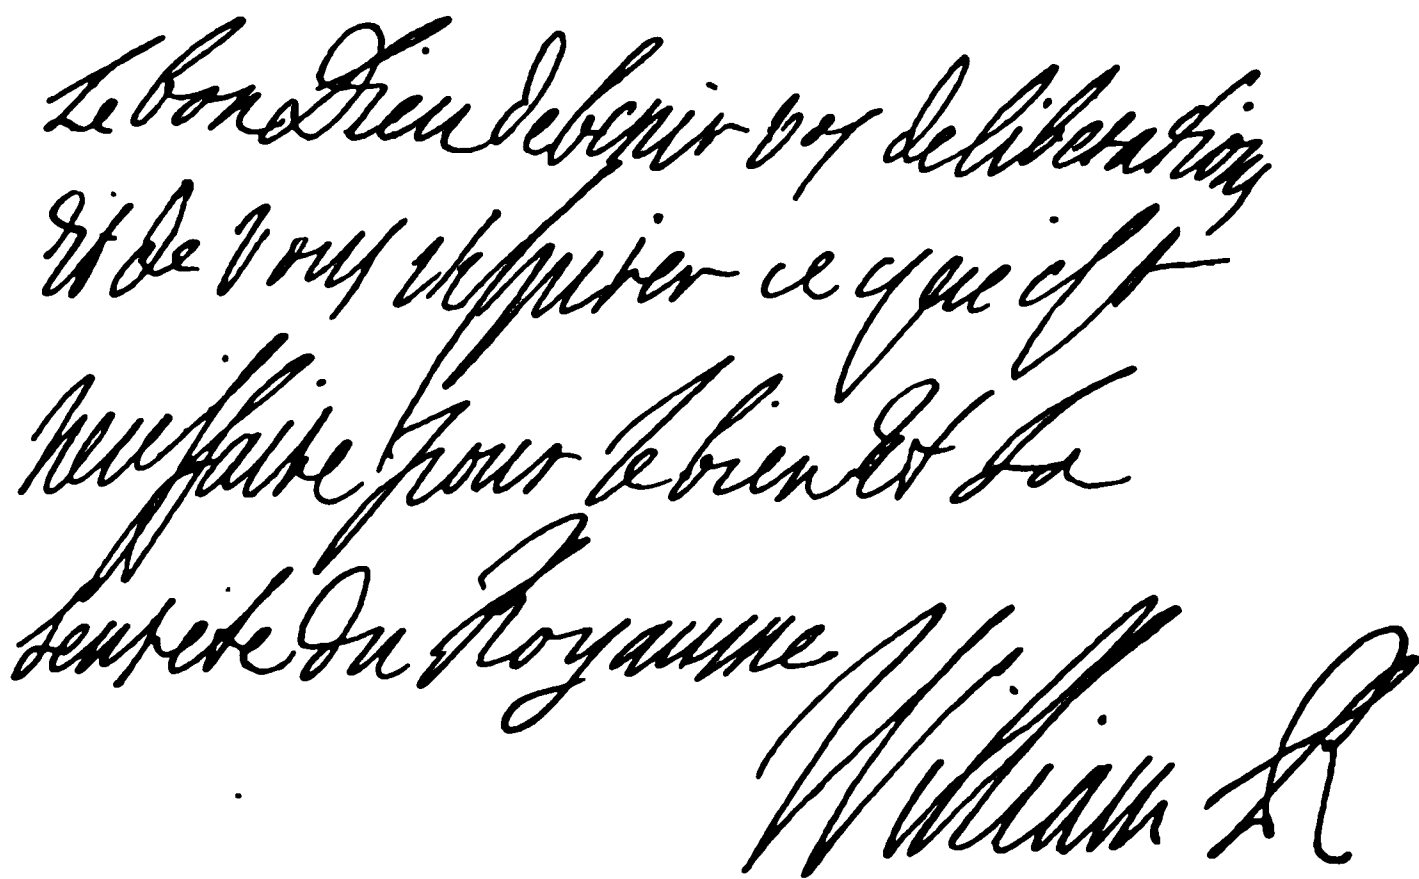 Le bon Dieu de benir vos deliberations
Et de vous inspirer ce que ist
necessaire pour le bien Et La
seurete du Royaume
William R